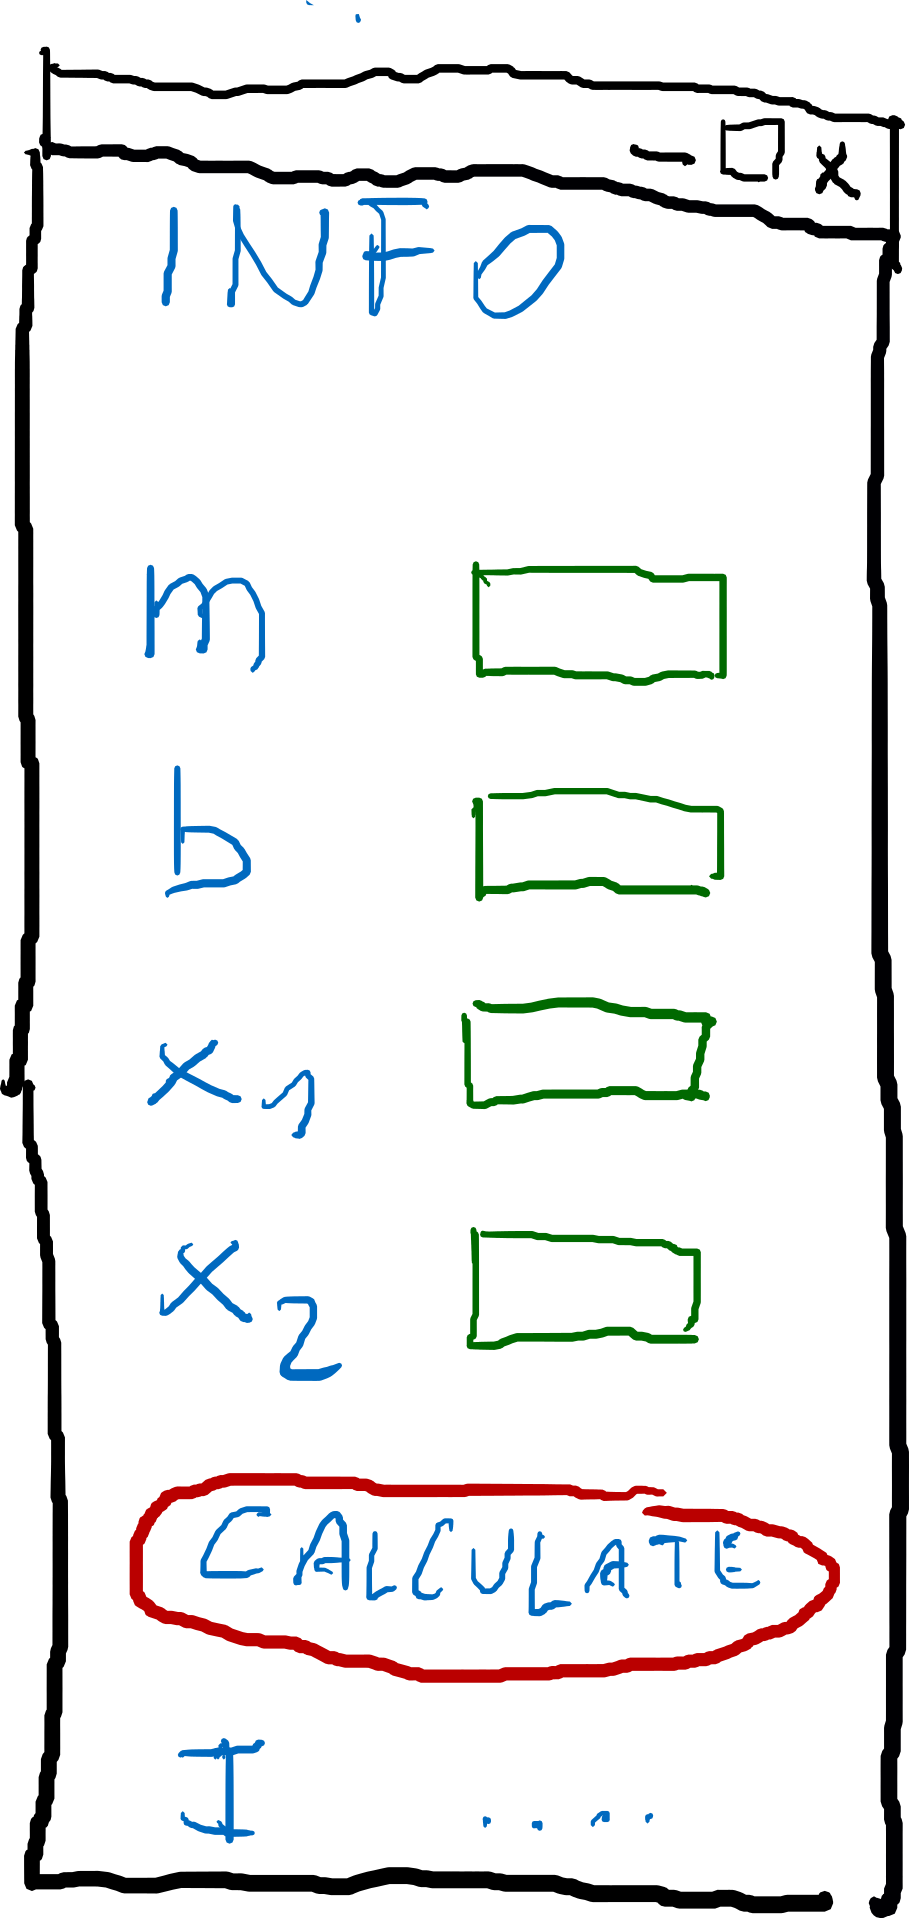 INFO
m
b
x₁
x₂
CALCULATE
I ....